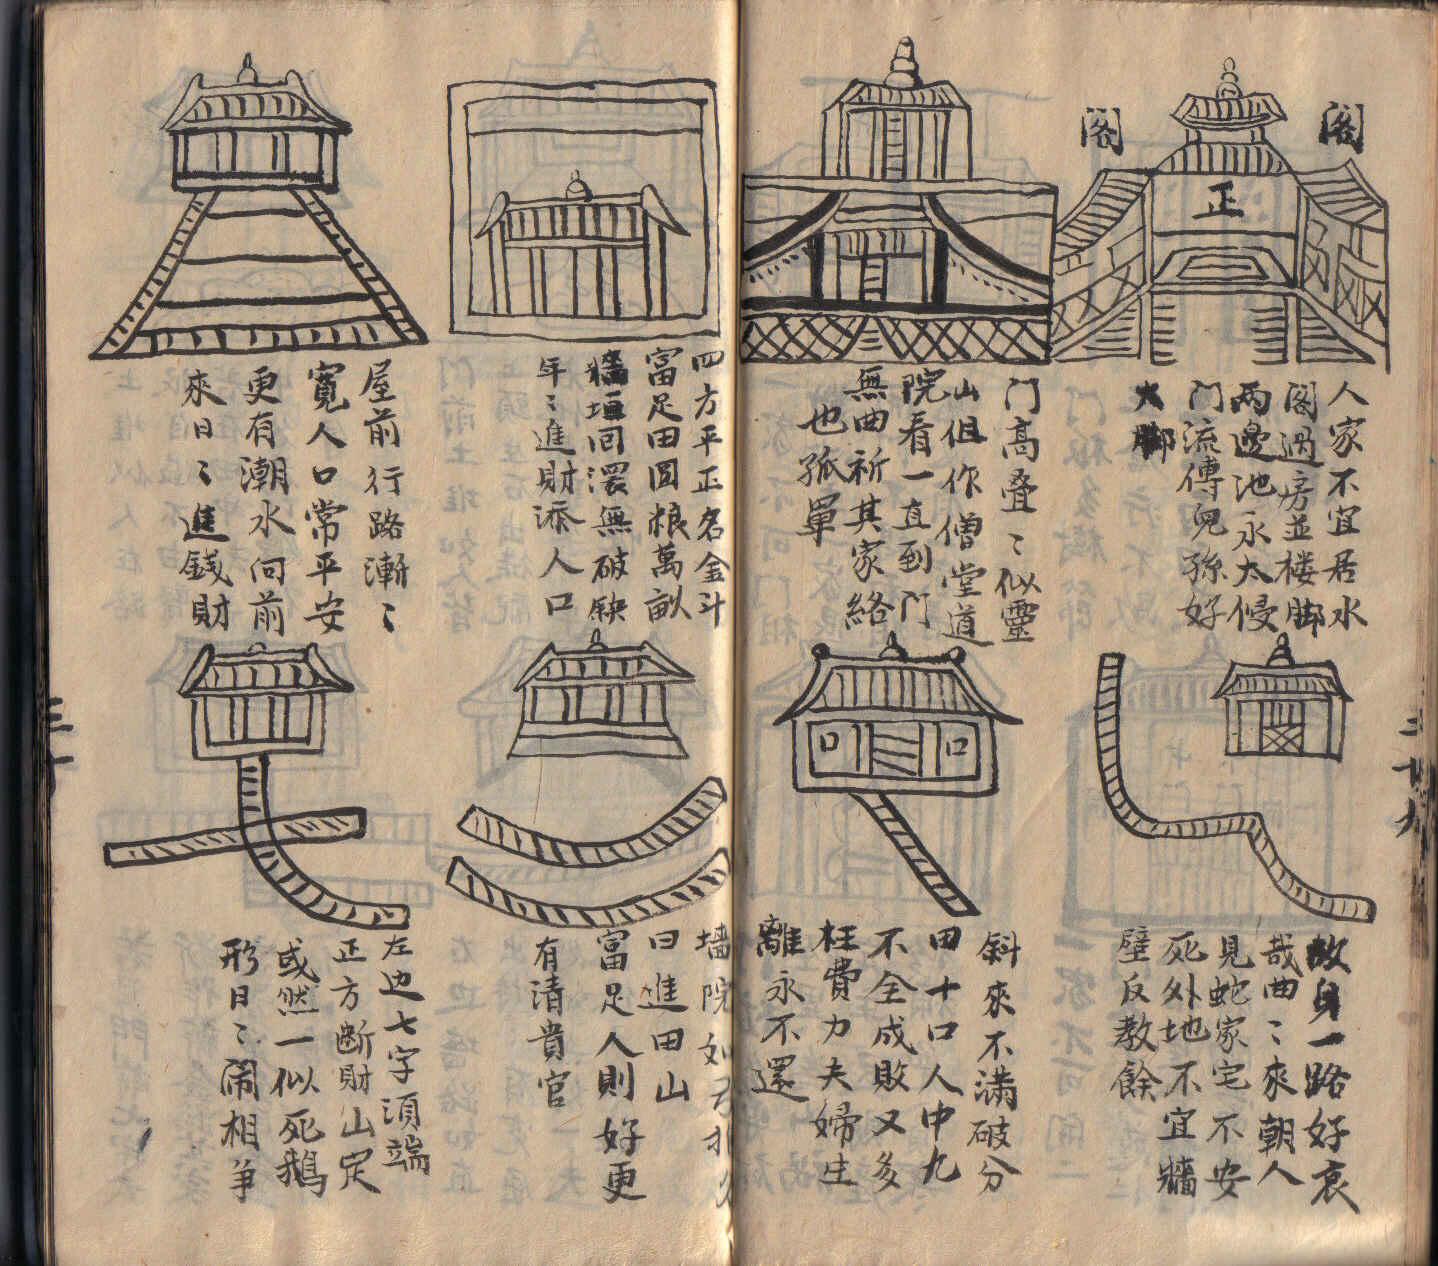 閣
閣
正
人家不宜居水
閣過房並楼脚
两邊池水太侵
门流傳兒孫好
大脚
门髙叠〻似靈
山但作僧堂道
院看一直到门
無曲祈其家絡
也孤單
四方平正名金斗
富足田園粮萬畝
墻垣回濴無破缺
年〻進財添人口
屋前行路漸〻
寬人口常平安
更有潮水向前
來日〻進錢財
三十九
故身一路好哀
哉曲〻來朝人
見蛇家宅不安
死外地不宜牆
壁反教餘
口
口
斜來不满破分
田十口人中九
不全成敗又多
枉費力夫婦生
離永不還
墙院如弓抱
曰進田山
富足人則好更
有清貴官
左边七字湏端
正方断財山定
或然一似死鵝
形日〻闹相争